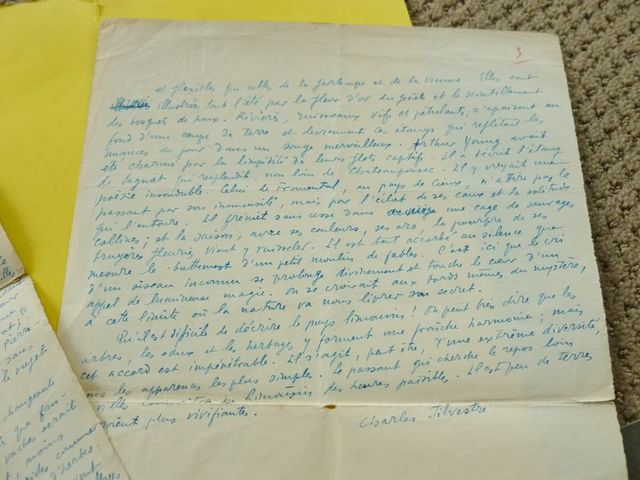 3
et flexibles que celles de la Gartempe et de la Vienne. Elles sont
illustrées tout l'été par la fleur d'or du genêt et le scintillement
des bosquets de houx. Rivières, ruisseaux vifs et pétulants, s'apaisent au
fond d'une conque de terre et deviennent ces étangs qui reflètent les
nuances du jour dans un songe merveilleux. Arthur Young avait
été charmé par la limpidité de leurs flots captifs. Il a décrit l'étang
de Sagnat qui resplendit non loin de Chateauponsac. Il y voyait une
poésie insondable. Celui de Fromental, au pays de Cieux, n'attire pas le
passant par son immensité, mais par l'éclat de ses eaux et la solitude
qui l'entoure. Il frémit sans cesse dans une cage de sauvages
collines; et la saison, avec ses couleurs, ses ors, la pourpre de ses
bruyères fleuries, vient y ruisseler. Il est tout accordé au silence que
mesure le battement d'un petit moulin de fables. C'est ici que le cri
d'un oiseau inconnu se prolonge divinement et touche le cœur d'un
appel de lumineuse magie. On se croirait aux bords mêmes du mystère,
à cette limite où la nature va nous livrer son secret.
Qu'il est difficile de décrire le pays limousin! On peut bien dire que les
arbres, les eaux et les herbages y forment une fraîche harmonie; mais
cet accord est impénétrable. Il s'agit, peut être, d'une extrême diversité,
les apparences les plus simples. Le passant qui cherche le repos loin
villes Limousin des heures paisibles. Il est peu de terres
soient plus vivifiantes.
Charles Silvestre
changeante
vaches serait
moins
d'herbes
Pierre
sans
le sujet